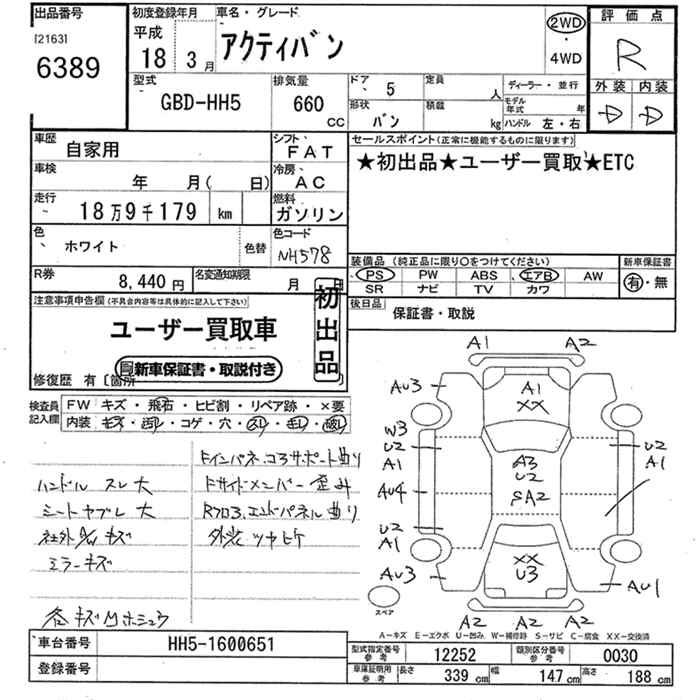 出品番号
[2163]
6389
初度登録年月
平成
18 3月
車名・グレード
アクティバン
2WD
・
4WD
評価点
R
外装 内装
D D
型式
GBD-HH5
排気量
660
CC
ドア
5
形状
バン
定員
人
積載
kg
ディーラー・並行
モデル年式 年
ハンドル 左・右
車歴
自家用
シフト
FAT
車検
年 月( 日)
冷房
AC
走行
18万9千179 km
燃料
ガソリン
色
ホワイト
色替
色コード
NH578
R券
8,440円
名変通知期限
月 日
セールスポイント(正常に機能するものに限ります)
★初出品★ユーザー買取★ETC
装備品(純正品に限り○をつけてください)
PS PW ABS エアB AW
SR ナビ TV カワ
新車保証書
有・無
後日品
保証書・取説
注意事項申告欄(不具合内容等は具体的に記入して下さい)
ユーザー買取車
新車保証書・取説付き
初出品
修復歴 有〔箇所
検査員
記入欄
FW キズ・飛石・ヒビ割・リペア跡・×要
内装
コゲ・穴・
ハンドル スレ大
シートヤブレ大
社外AWキズ
ミラーキズ
各キズ凹ホシュウ
Fインパネ、コアサポート曲り
Fサイドメンバー歪み
Rフロア、エンドパネル曲り
外装ツヤヒケ
A1 A2
AU3
A1
XX
W3
U2
A1
AU4
U2
A1
AU3
A3
U2
SA2
XX
U3
U2
A1
AU1
A2 A2 A2
スペア
A-キズ E-エクボ U-凹み W-補修跡 S-サビ C-腐食 XX-交換済
車台番号
HH5-1600651
登録番号
型式指定番号
参考
12252
類別区分番号
参考
0030
車庫証明用
参考
長さ 339 cm 幅 147 cm 高さ 188 cm